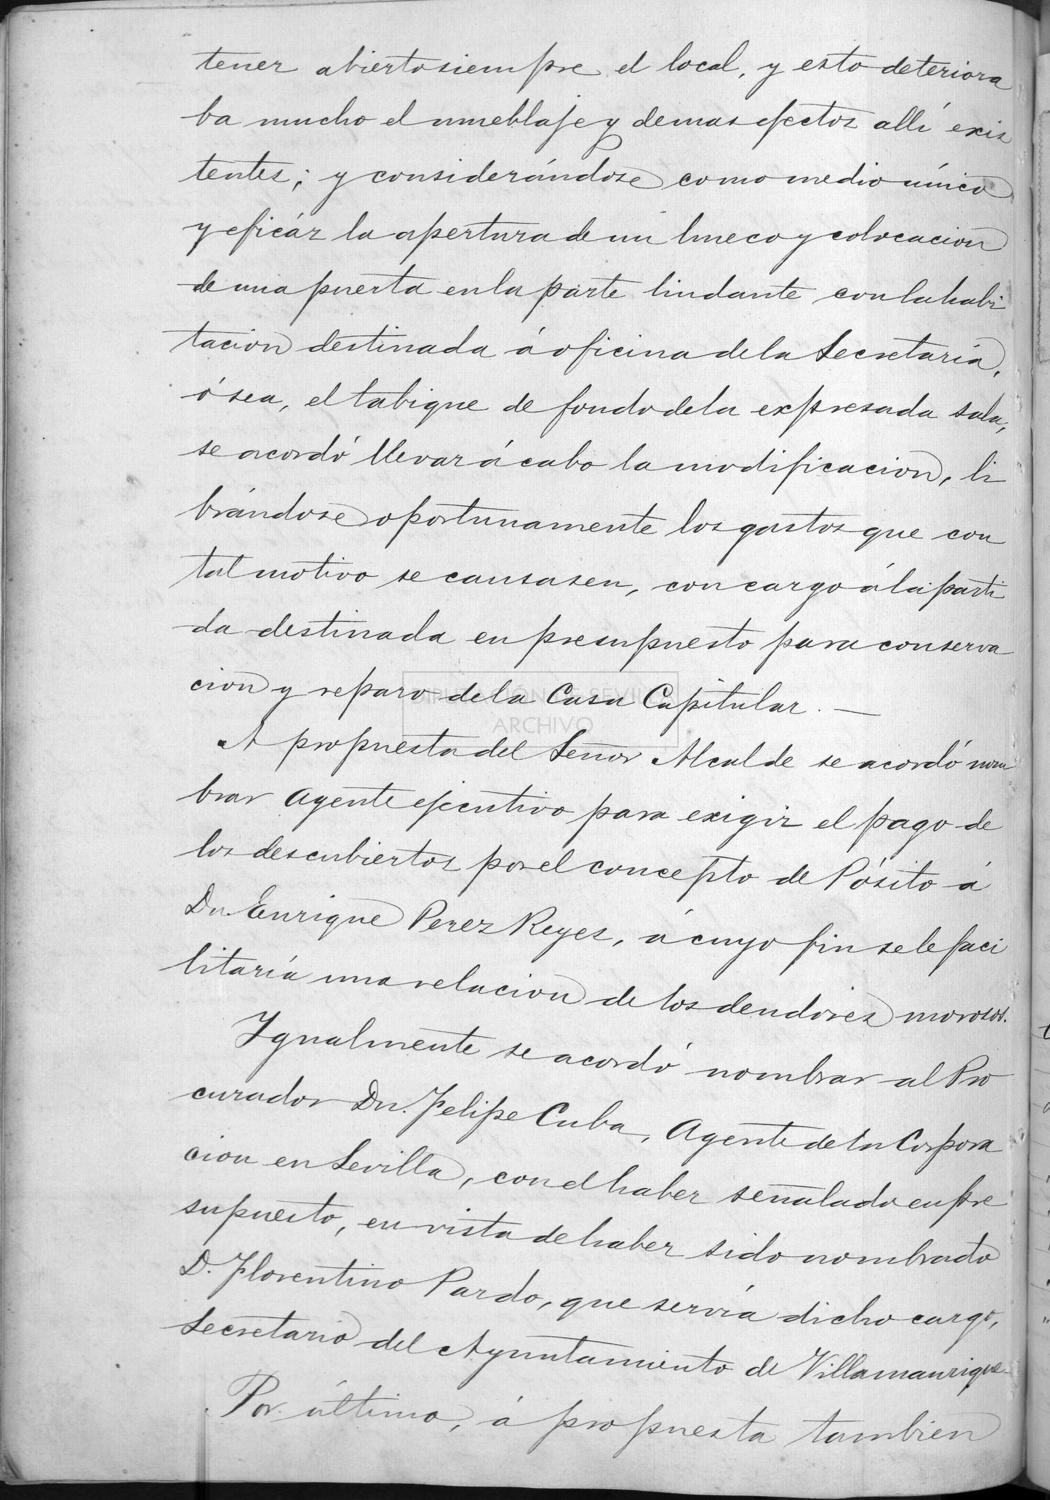 tener abierto siempre el local, y esto deteriora
ba mucho el mueblaje y demas efectos allí exis
tentes; y considerándose como medio único
y eficáz la apertura de un hueco y colocacion
de una puerta en la parte lindante con la habi
tacion destinada á oficina de la Secretaría,
ó sea, el tabique de fondo de la expresada sala,
se acordó llevar á cabo la modificacion, li
brándose oportunamente los gastos que con
tal motivo se causasen, con cargo á la parti
da destinada en presupuesto para conserva
cion y reparo de la Casa Capitular. —
DIPUTACIÓN DE SEVILLA
ARCHIVO
A propuesta del Señor Alcalde se acordó nom
brar Agente ejecutivo para exigir el pago de
los descubiertos por el concepto de Pósito á
Dn. Enrique Perez Reyes, á cuyo fin se le faci
litaría una relacion de los deudores morosos.
Igualmente se acordó nombrar al Pro
curador Dn. Felipe Cuba, Agente de la Corpora
cion en Sevilla, con el haber señalado en pre
supuesto, en vista de haber sido nombrado
D. Florentino Pardo, que servía dicho cargo,
Secretario del Ayuntamiento de Villamanrique
Por último, á propuesta tambien